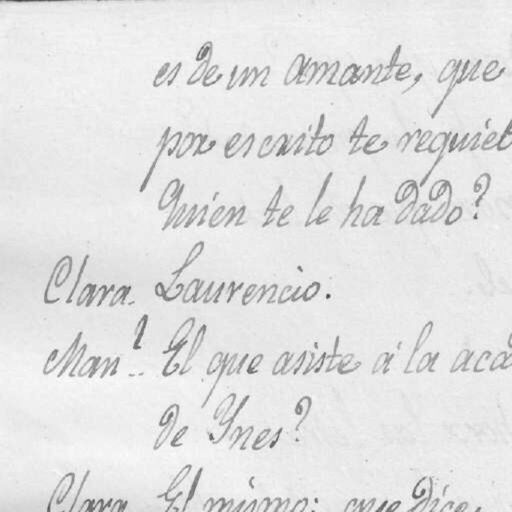 es de un amante, que
por escrito te requie
Quien te le ha dado?
Clara. Laurencio.
Man.l El que asiste á la aca
de Ynes?
Clara El mismo: que dice